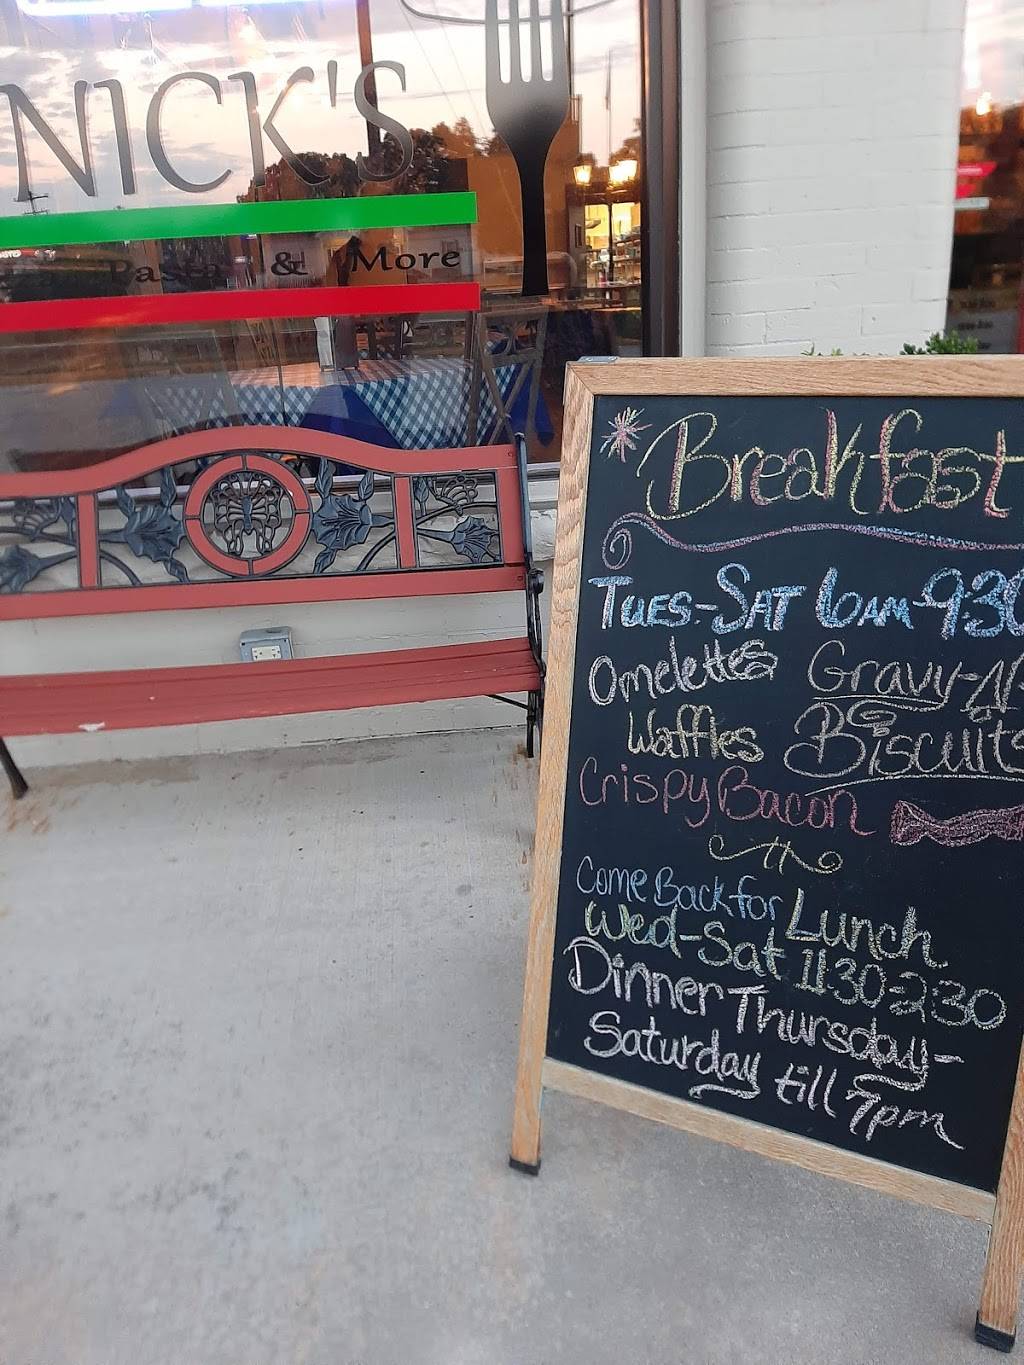 NICK'S
Pasta & More
Breakfast
Tues.-Sat 6am-930
Omelettes Gravy-N-
Waffles Biscuits
Crispy Bacon
Come Back for Lunch
Wed-Sat 1130-230
Dinner Thursday-
Saturday till 7pm